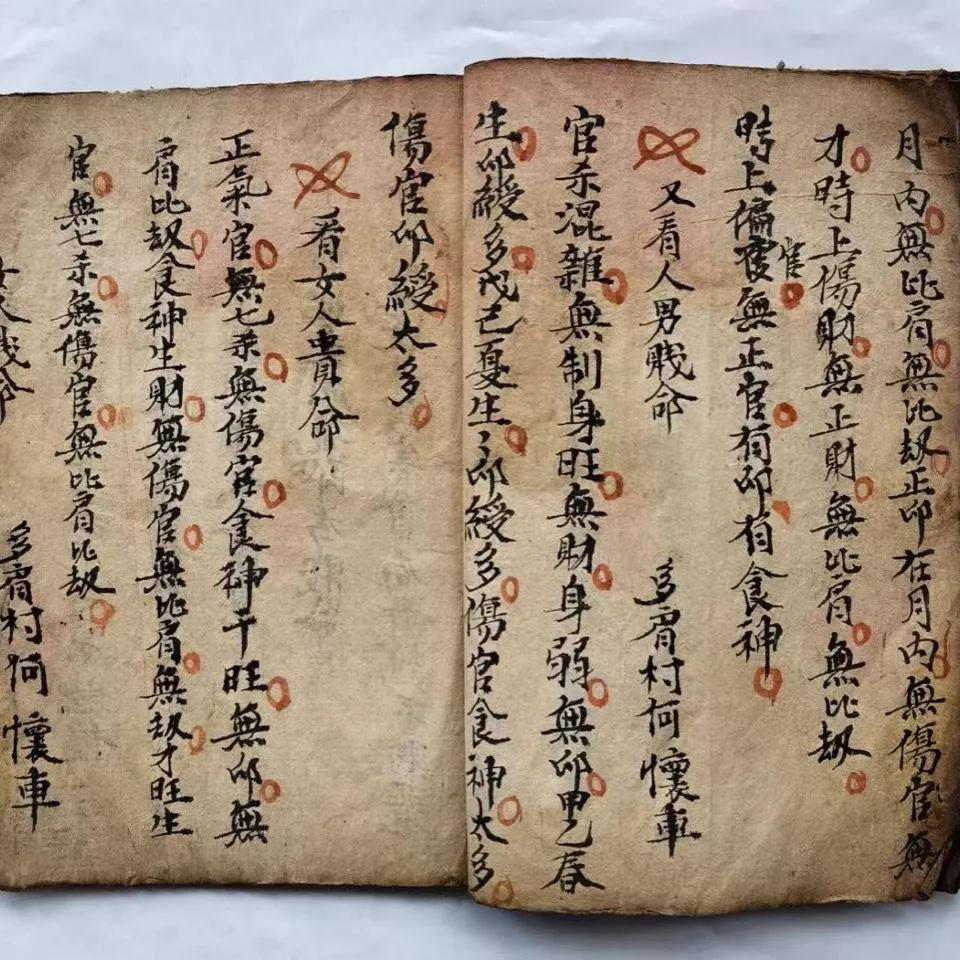 月内無比肩無比劫正印在月内無傷官無
才時上傷財無正財無比肩無比劫
時上偏官無正官有卬有食神
又看人男賎命 多肩村何懷車
官杀混雜無制身旺無財身弱無卬甲乙春
生卬綬多戊己夏生卬綬多傷官食神太多
傷官卬綬太多
看女人貴命
正氣官無七杀無傷官食神干旺無卬無
肩比劫食神生財無傷官無比肩無劫才旺生
官無七杀無傷官無比肩比劫
女人賎命 多肩村何懷車